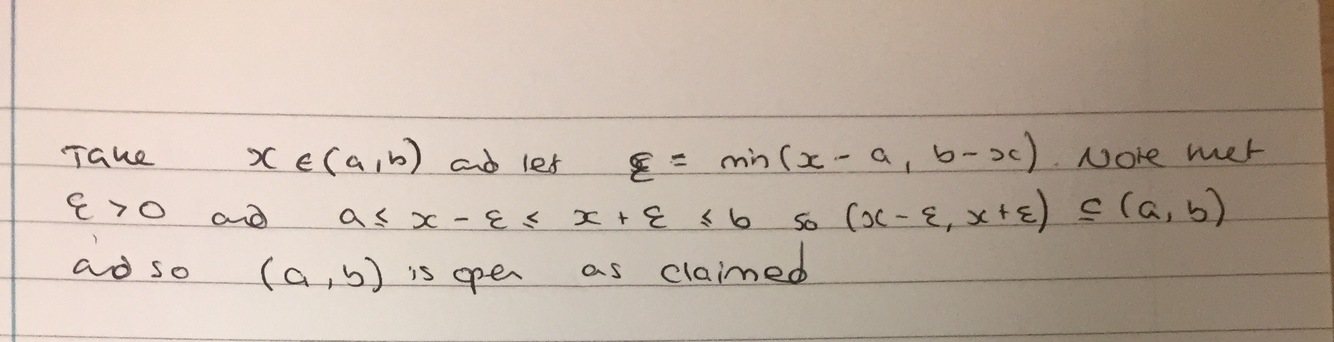 Take x ∈ (a,b) and let ε = min(x-a, b-x). Note that
ε > 0 and a ≤ x-ε ≤ x+ε ≤ b so (x-ε, x+ε) ⊆ (a,b)
and so (a,b) is open as claimed